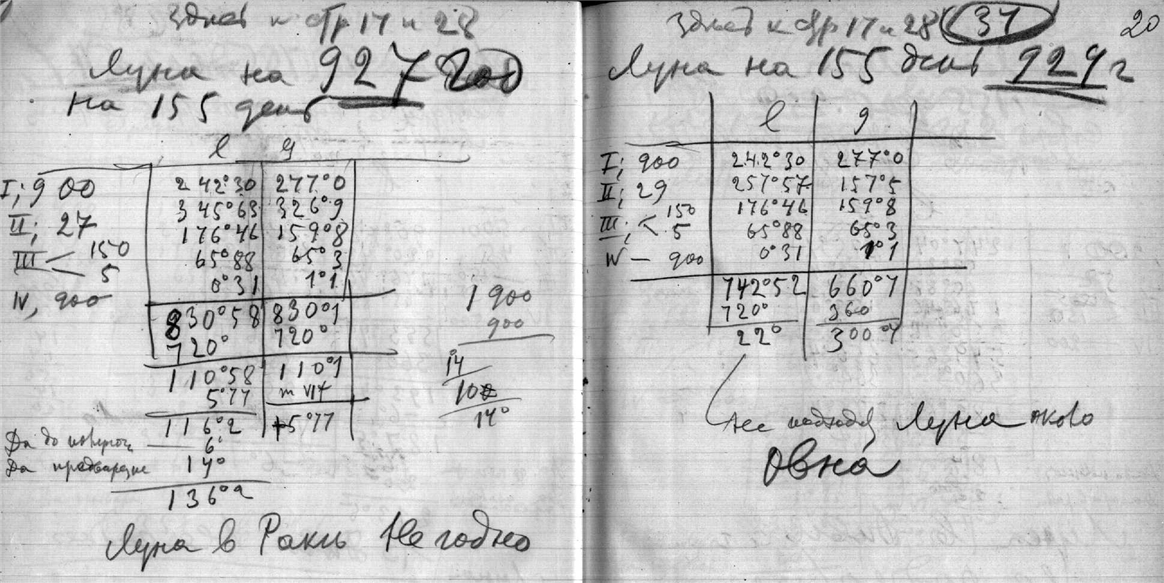 к стр 17 и 28
Луна на 927 год
на 155 день
l g
I; 900 242°30 277°0
II; 27 345°63 326°9
III 150 176°46 159°8
5 65°88 65°3
IV, 900 0°31 1°1
830°58 830°1
720° 720°
110°58 110°1
5°77
116°2 +5°77
6°
14°
136°2
1900
900
14
10
14°
Да
Да
Луна в Раки Не годно
к стр 17 и 28 34 20
Луна на 155 день 929 г
l g
I; 900 242°30 277°0
II; 29 257°57 157°5
III; 150 176°46 159°8
5 65°88 65°3
IV — 900 0°31 1°1
742°52 660°4
720° 360
22° 300°4
Луна около
Овна